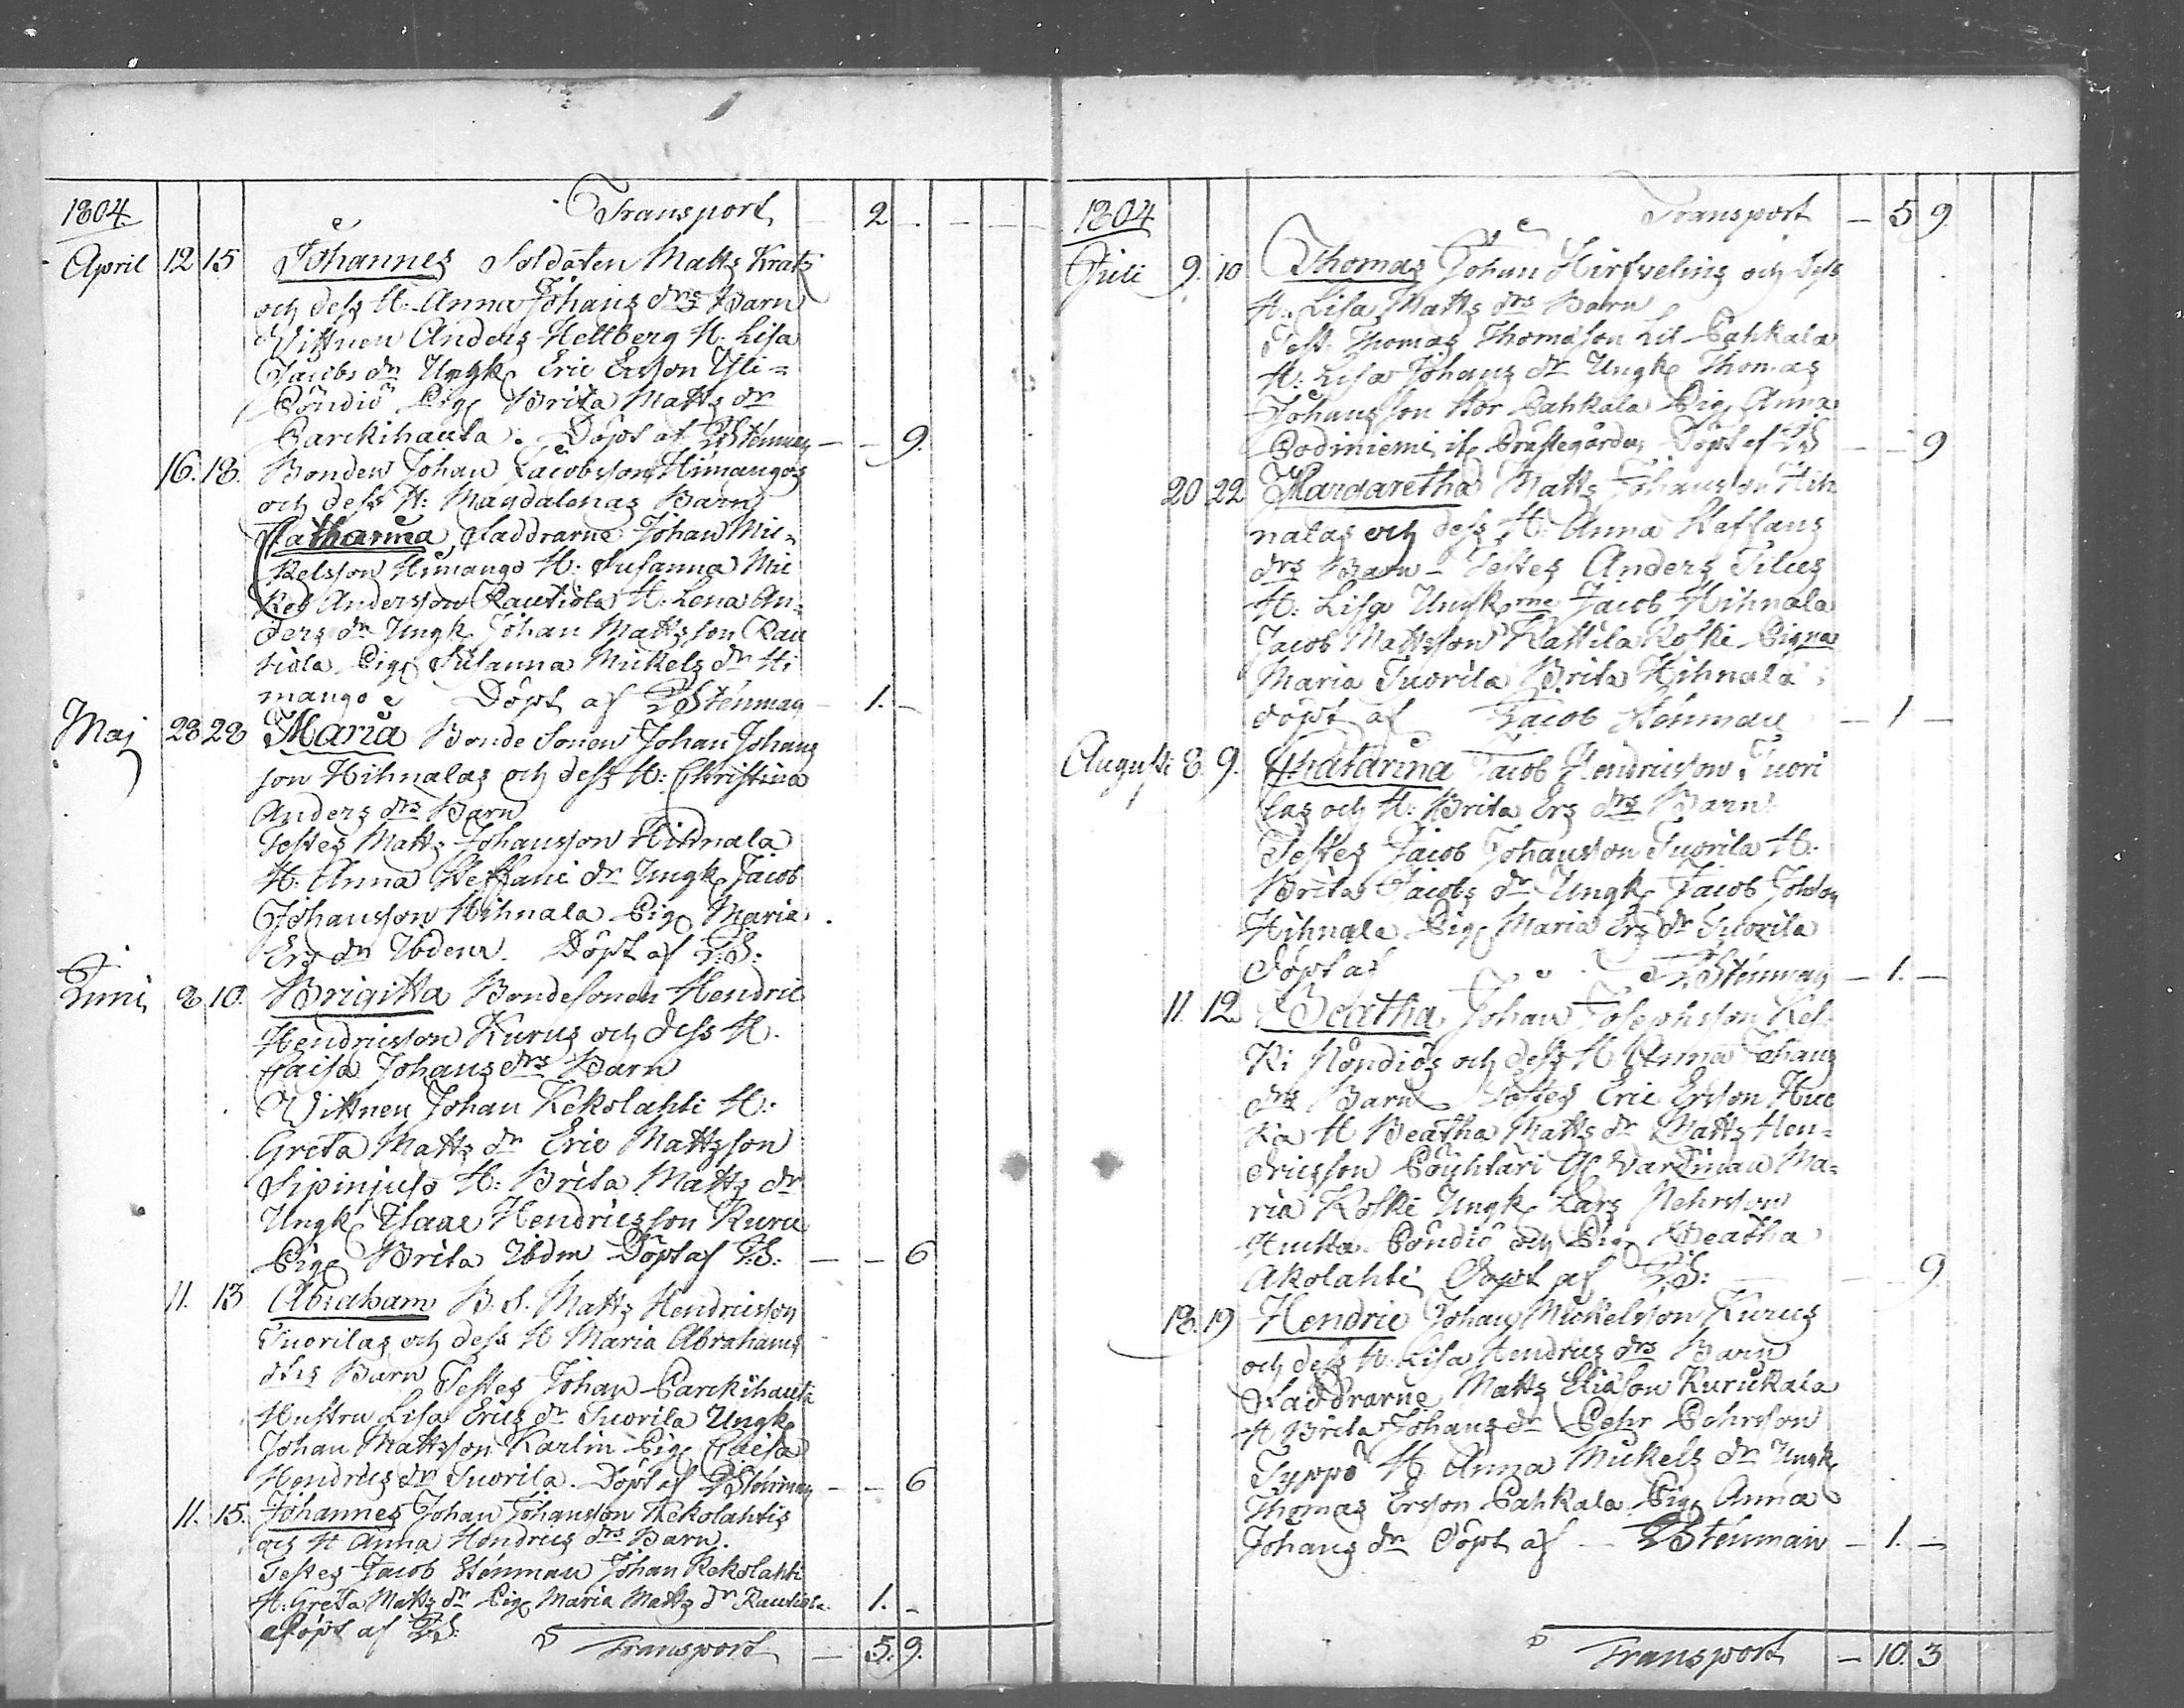 1804. Transport 2 - - -
April 12 15 Johannes Soldaten Matts Krats
och dess H: Anna Johans drs Barn
Vittnen Anders Hellberg H. Lisa
Jacobs dr Ungk. Eric Ersson Yli=
Pöndiö Pig. Brita Matts dr
Parckihauta. Döpt af J Stenman - - 9.
16. 18. Bonden Johan Jacobsson Himangos
och dess H: Magdalenas Barn
Catharina, Faddrarne Johan Mic-
kelsson Himango H: Susanna Mic
kel Andersson Rautiola H. Lena An-
ders dr Ungk Johan Mattsson Rau
tiola Pig. Susanna Mickels dr Hi
mango Döpt af J Stenman - 1. -
Maj 28 28 Maria Bonde Sonen Johan Johans
son Hihnalas och dess H: Christina
Anders drs Barn
Testes Matts Johansson Hihnala
H. Anna Steffani dr Ungk. Jacob
Johansson Hihnala Pig. Maria
Ers dr Ibdem. Döpt af J.S:
Juni 8. 10. Brigitta Bondesonen Hendric
Hendricsson Kurus och dess H.
Caisa Johans drs Barn
Vittnen Johan Kekolahti H:
Greta Matts dr Eric Mattsson
Sipinjuso H: Brita Matts dr
Ungk. Isaac Hendricsson Kuru
Pig. Brita Ibdm Döpt af J.S: - - 6
11. 13 Abraham B. S. Matts Hendricsson
Tuorilas och dess H Maria Abrahams
drs Barn Testes Johan Parckihauta
Hustru Lisa Erics dr Tuorila Ungk.
Johan Mattsson Karlin Pig. Caisa
Hendrics dr Tuorila. Döpt af J Stenman - - 6
11. 15. Johannes Johan Johansson Kekolahtis
och H Anna Hendrics drs Barn.
Testes Jacob Stenman Johan Kekolahti
H: Greta Matts dr Pig. Maria Matts dr Rautiola 1. -
Döpt af J.S:
Transport - 5. 9.
1804 Transport - 5 9.
Juli 9. 10 Thomas Johan Hirfvelins och dess
H. Lisa Matts drs Barn
Test. Thomas Thomasson Lil Pahkala
H: Lisa Johans dr Ungk. Thomas
Johansson Stor Pahkala Pig. Anna
Podiniemi Prästegården Döpt af J.S - - 9
20 22 Margaretha Matts Johansson Hih
nalas och dess H. Anna Steffans
drs Barn - Testes Anders Tilus
H: Lisa Ungk.rne Jacob Hihnala
Jacob Mattsson Kattila Koski Pigna
Maria Tuorila Brita Hihnala
döpt af Jacob Stenman - 1 -
Augusti 8. 9. Chatarina Jacob Hendricsson Tuori
las och H: Brita Ers drs Barn
Testes Jacob Johansson Tuorila H.
Brita Jacobs dr Ungk. Jacob
Hihnala Pig. Maria Ers dr Tuorila
döpt af J Stenman - 1. -
11. 12. Beatha Johan Josephsson Kes
ki Pöndiös och dess H. Anna Johans
drs Barn Testes Eric Ersson Huc
ka H Beatha Matts dr Matts Hen=
dricsson Pöyhtäri Ma=
ria Koski Ungk Lars Pehrsson
Hucka Pöndiö och Pig. Beatha
Akolahti Döpt af J.S: - - 9.
18. 19 Hendric Johan Mickelsson Kurus
och dess H. Lisa Hendrics drs Barn
Faddrarne Matts Eliasson Kurukala
H Brita Johans dr Pehr Pehrsson
Typpö H. Anna Mickels dr Ungk.
Thomas Ersson Pahkala Pig. Anna
Johans dr Döpt af - J Stenman - 1. -
Transport - 10. 3